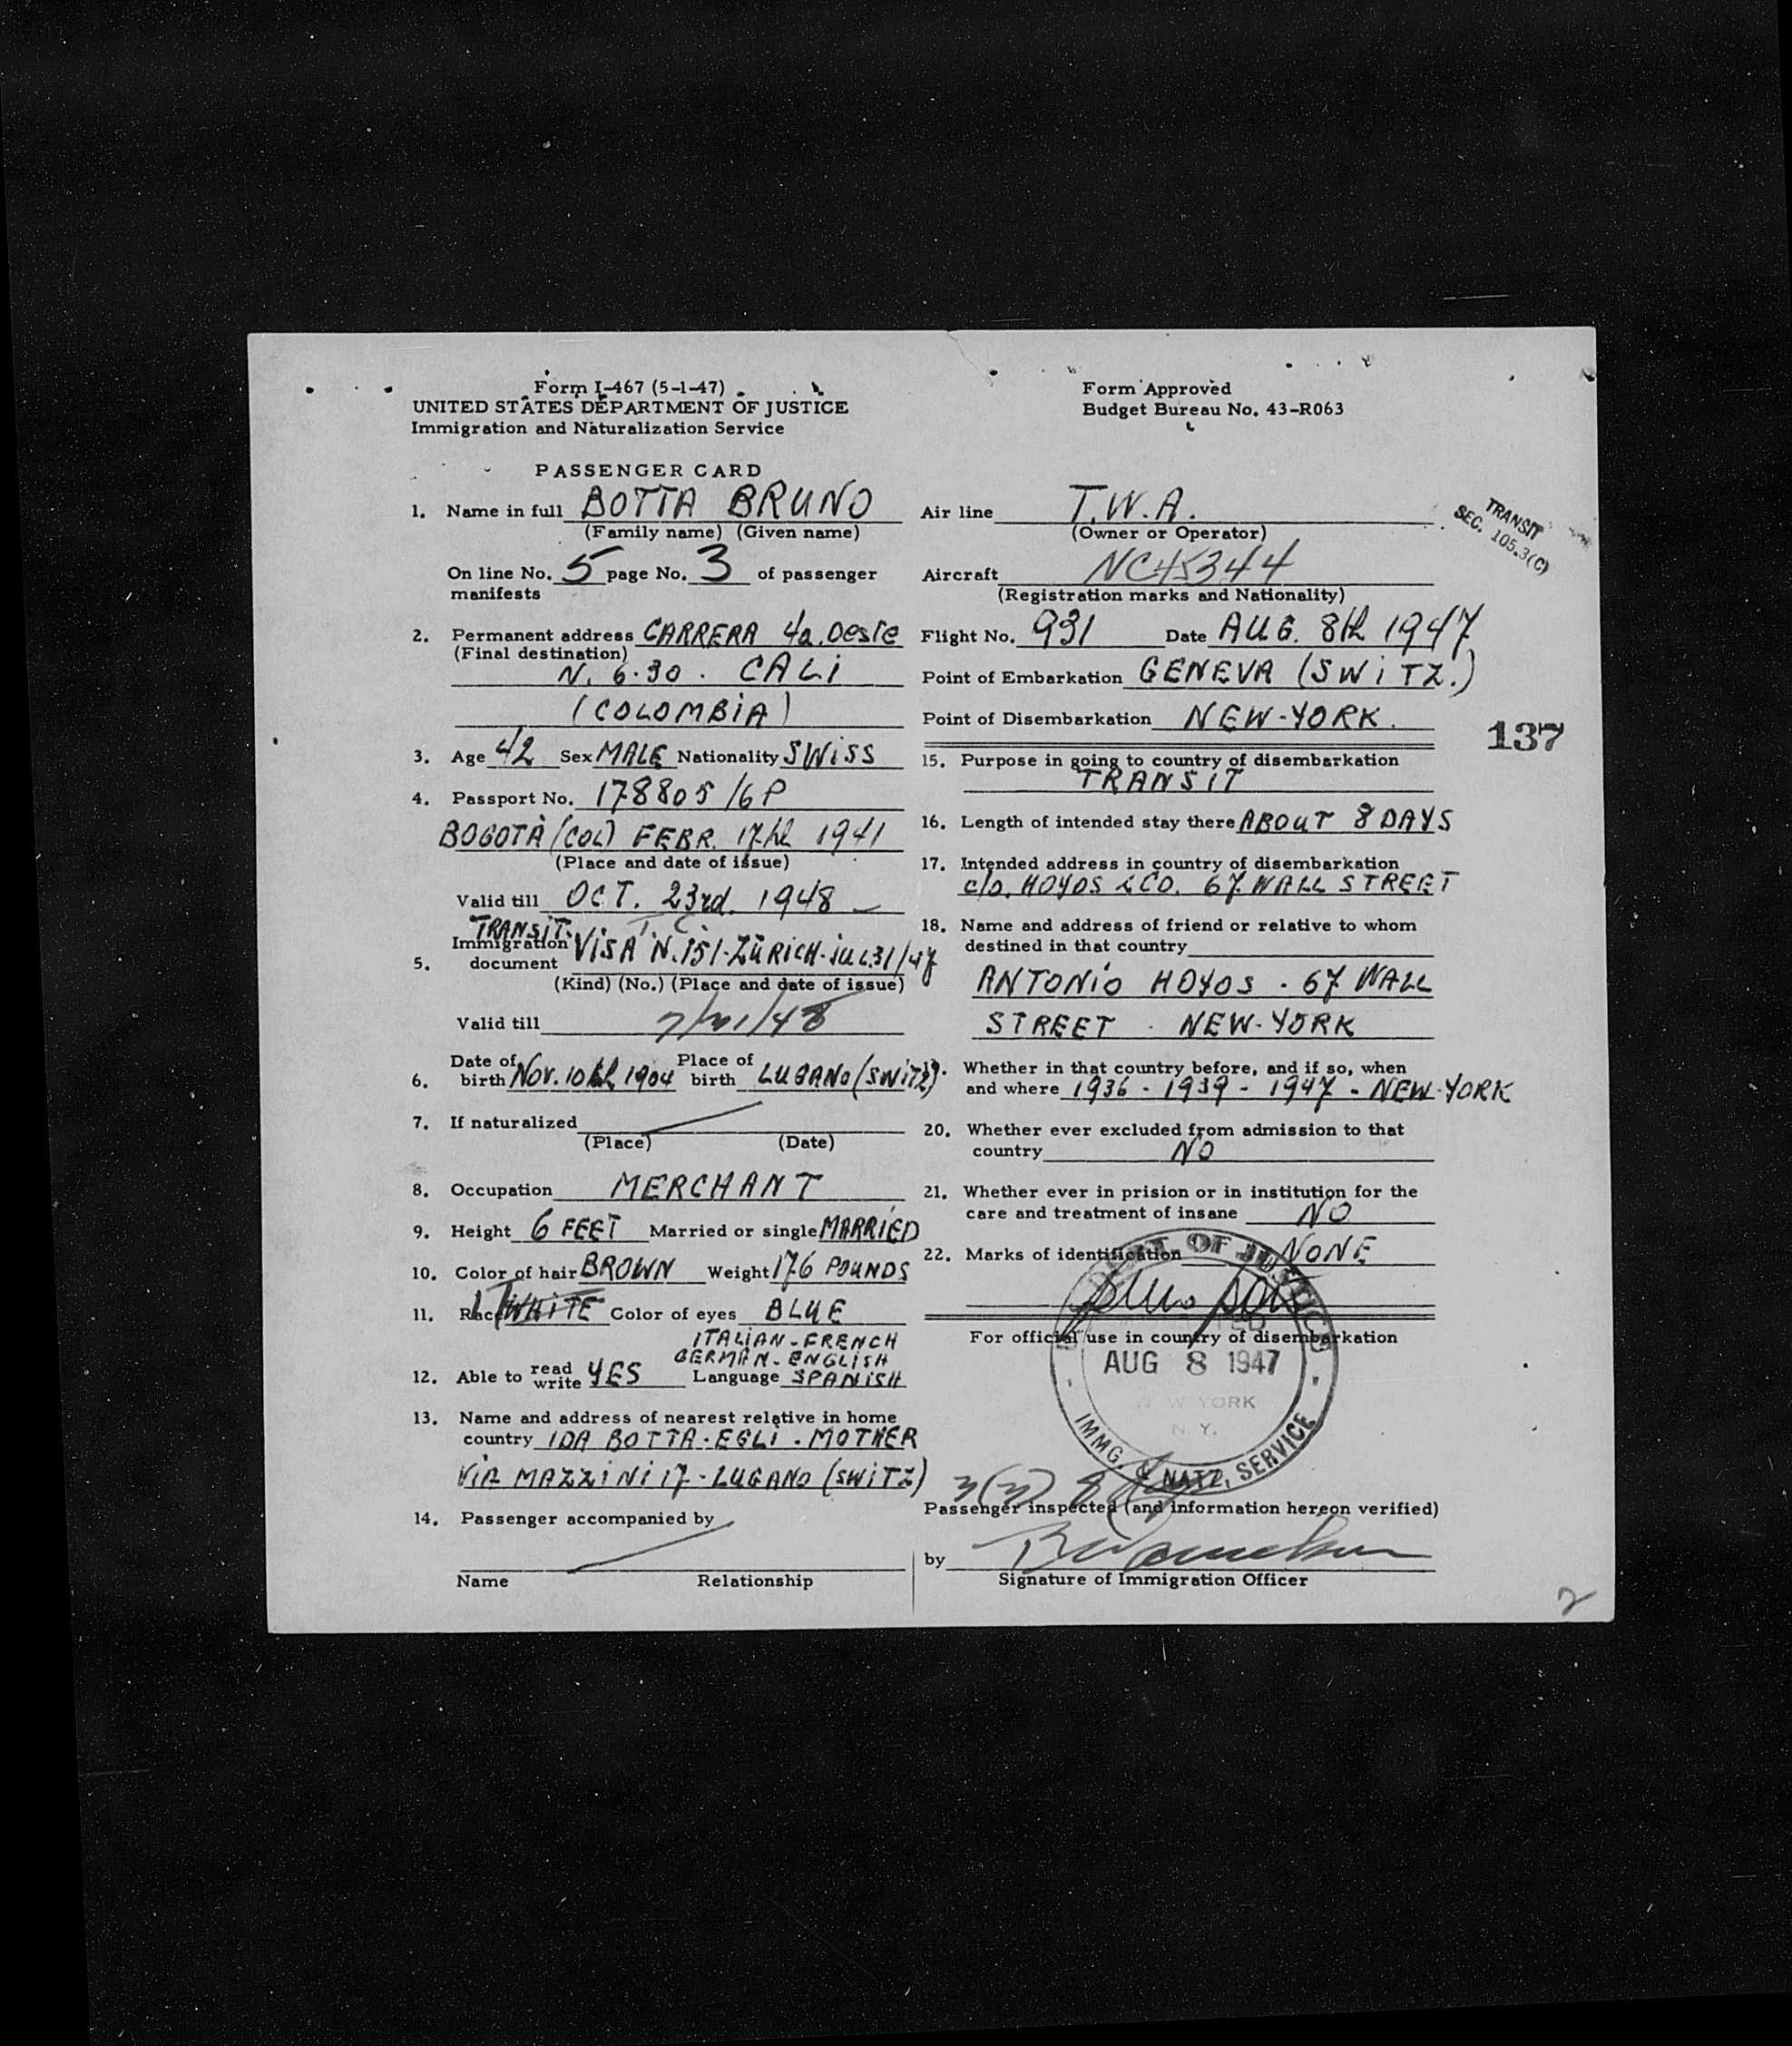 Form I-467 (5-1-47)
UNITED STATES DEPARTMENT OF JUSTICE
Immigration and Naturalization Service
Form Approved
Budget Bureau No. 43-R063
PASSENGER CARD
1. Name in full BOTTA BRUNO
(Family name) (Given name)
On line No. 5 page No. 3 of passenger
manifests
2. Permanent address CARRERA 4a. Oeste
(Final destination)
N. 6-30. CALI
(COLOMBIA)
3. Age 42 Sex MALE Nationality SWISS
4. Passport No. 178805/6P
BOGOTÀ (COL) FEBR. 17th 1941
(Place and date of issue)
Valid till OCT. 23rd. 1948
TRANSIT.
Immigration
5. document VISA N. 151-ZÜRICH-JUL.31/47
(Kind) (No.) (Place and date of issue)
Valid till 7/31/48
6. Date of birth NOV. 10th 1904 Place of birth LUGANO (SWITZ)
7. If naturalized
(Place) (Date)
8. Occupation MERCHANT
9. Height 6 FEET Married or single MARRIED
10. Color of hair BROWN Weight 176 POUNDS
11. Race WHITE Color of eyes BLUE
ITALIAN-FRENCH
GERMAN-ENGLISH
12. Able to read write YES Language SPANISH
13. Name and address of nearest relative in home
country IDA BOTTA-EGLI. MOTHER
VIA MAZZINI 17-LUGANO (SWITZ)
14. Passenger accompanied by
Name Relationship
Air line T.W.A.
(Owner or Operator)
TRANSIT
SEC. 105.3(C)
Aircraft NC45344
(Registration marks and Nationality)
Flight No. 931 Date AUG. 8th 1947
Point of Embarkation GENEVA (SWITZ.)
Point of Disembarkation NEW-YORK.
137
15. Purpose in going to country of disembarkation
TRANSIT
16. Length of intended stay there ABOUT 8 DAYS
17. Intended address in country of disembarkation
c/o. HOYOS & CO. 67 WALL STREET
18. Name and address of friend or relative to whom
destined in that country
ANTONIO HOYOS. 67 WALL
STREET. NEW-YORK
Whether in that country before, and if so, when
and where 1936-1939-1947-NEW-YORK
20. Whether ever excluded from admission to that
country NO
21. Whether ever in prision or in institution for the
care and treatment of insane NO
22. Marks of identification NONE
For official use in country of disembarkation
DEPT OF JUSTICE
AUG 8 1947
NEW YORK
N. Y.
IMMG. & NATZ. SERVICE
Passenger inspected (and information hereon verified)
by
Signature of Immigration Officer
2